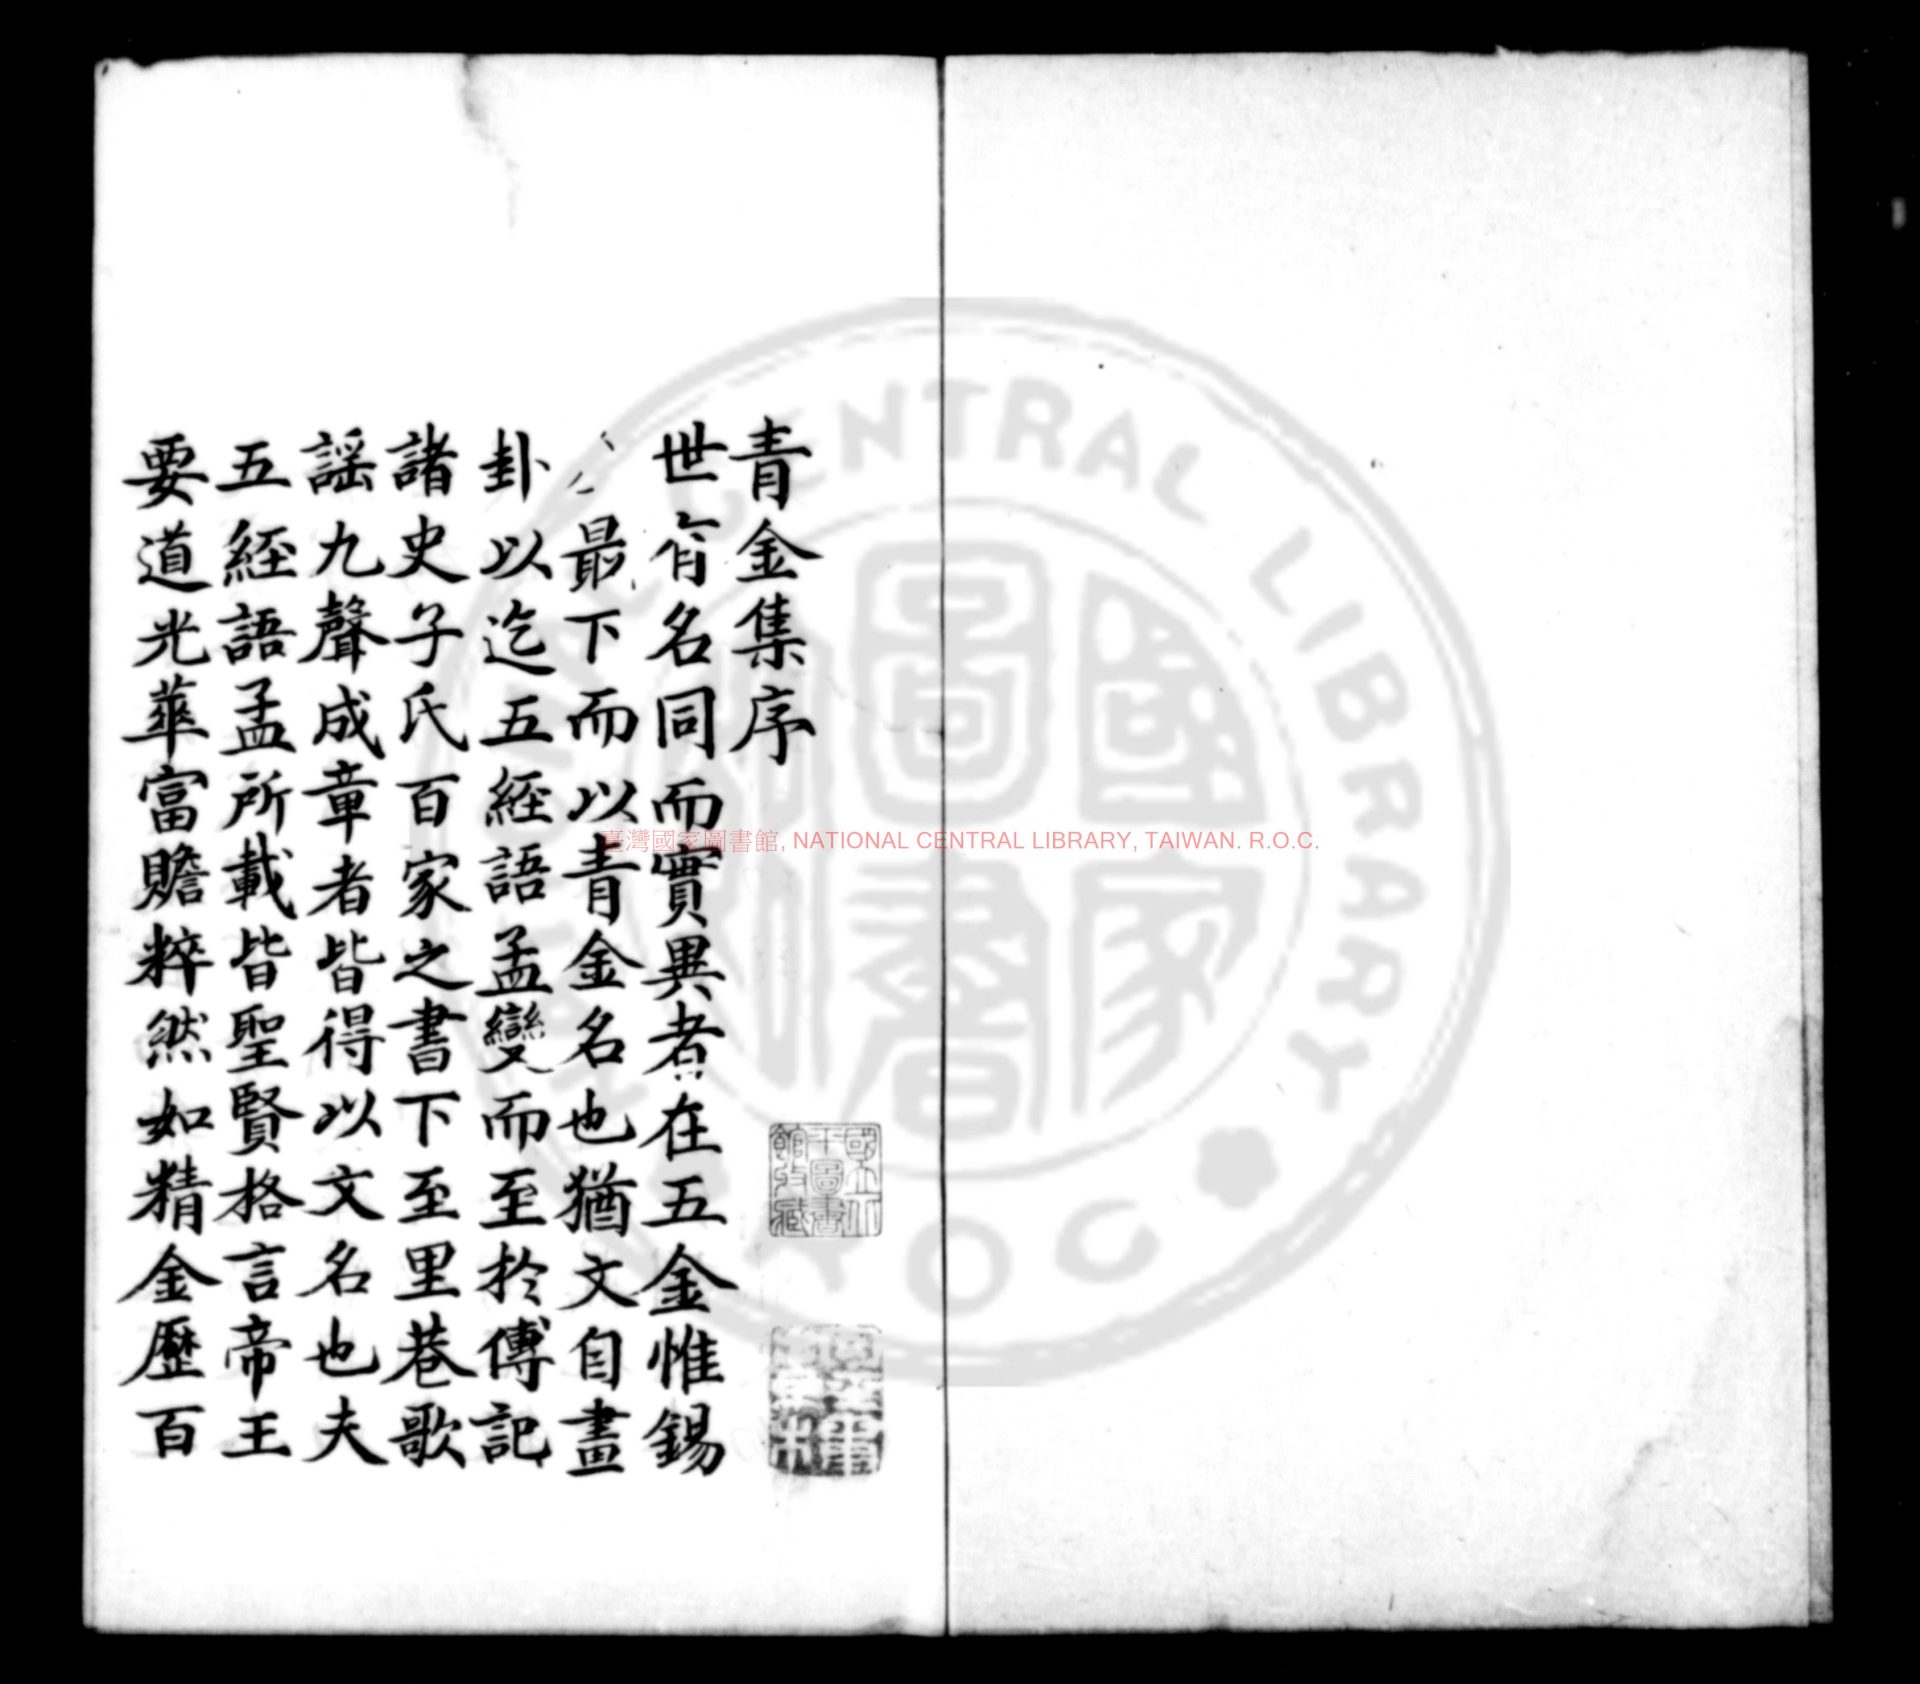 青金集序
世有名同而實異者在五金惟錫
最下而以青金名也猶文自畫
卦以迄五經語孟變而至於傳記
諸史子氏百家之書下至里巷歌
謡九聲成章者皆得以文名也夫
五經語孟所載皆聖賢格言帝王
要道光華富贍粹然如精金歷百
國立北
平圖書
館收藏
臺灣國家圖書館, NATIONAL CENTRAL LIBRARY, TAIWAN. R.O.C.
國家圖書
NATIONAL CENTRAL LIBRARY
R.O.C.